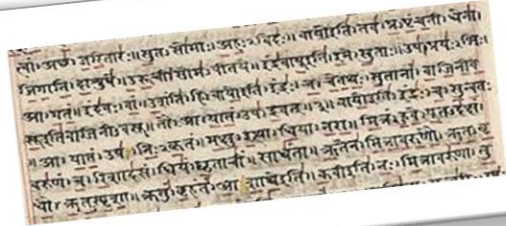 त्वां। अच्छ। जरितारः॥ सुतऽसोमाः। अहःऽविदः॥ वायो इति। तव। प्रऽपृंचती। धेना।
जिगाति। दाशुषे॥ उरूची। सोमऽपीतये॥ इंद्रवायू इति। इमे। सुताः॥ उप। प्रयःऽभिः।
आ। गतं॥ इंदवः। वां। उशंति। हि॥ वायो इति। इंद्रः। च। चेतथः। सुतानां। वाजिनीव
सू इति वाजिनीवसू॥ तौ। आ। यातं। उप। द्रवत्॥ ३॥ वायो इति। इंद्रः। च। सुन्वतः
॥ आ। यातं। उप। निःऽकृतं। मक्षु। इत्था। धिया। नरा॥ मित्रं। हुवे। पूतऽदक्षं।
वरुणं। च। रिशादसं॥ धियं। घृताचीं। साधंता॥ ऋतेन। मित्रावरुणौ। ऋतऽवृ
धौ। ऋतऽस्पृशा॥ क्रतुं। बृहंतं। आशाथे इति॥ कवी इति। नः। मित्रावरुणा। तु